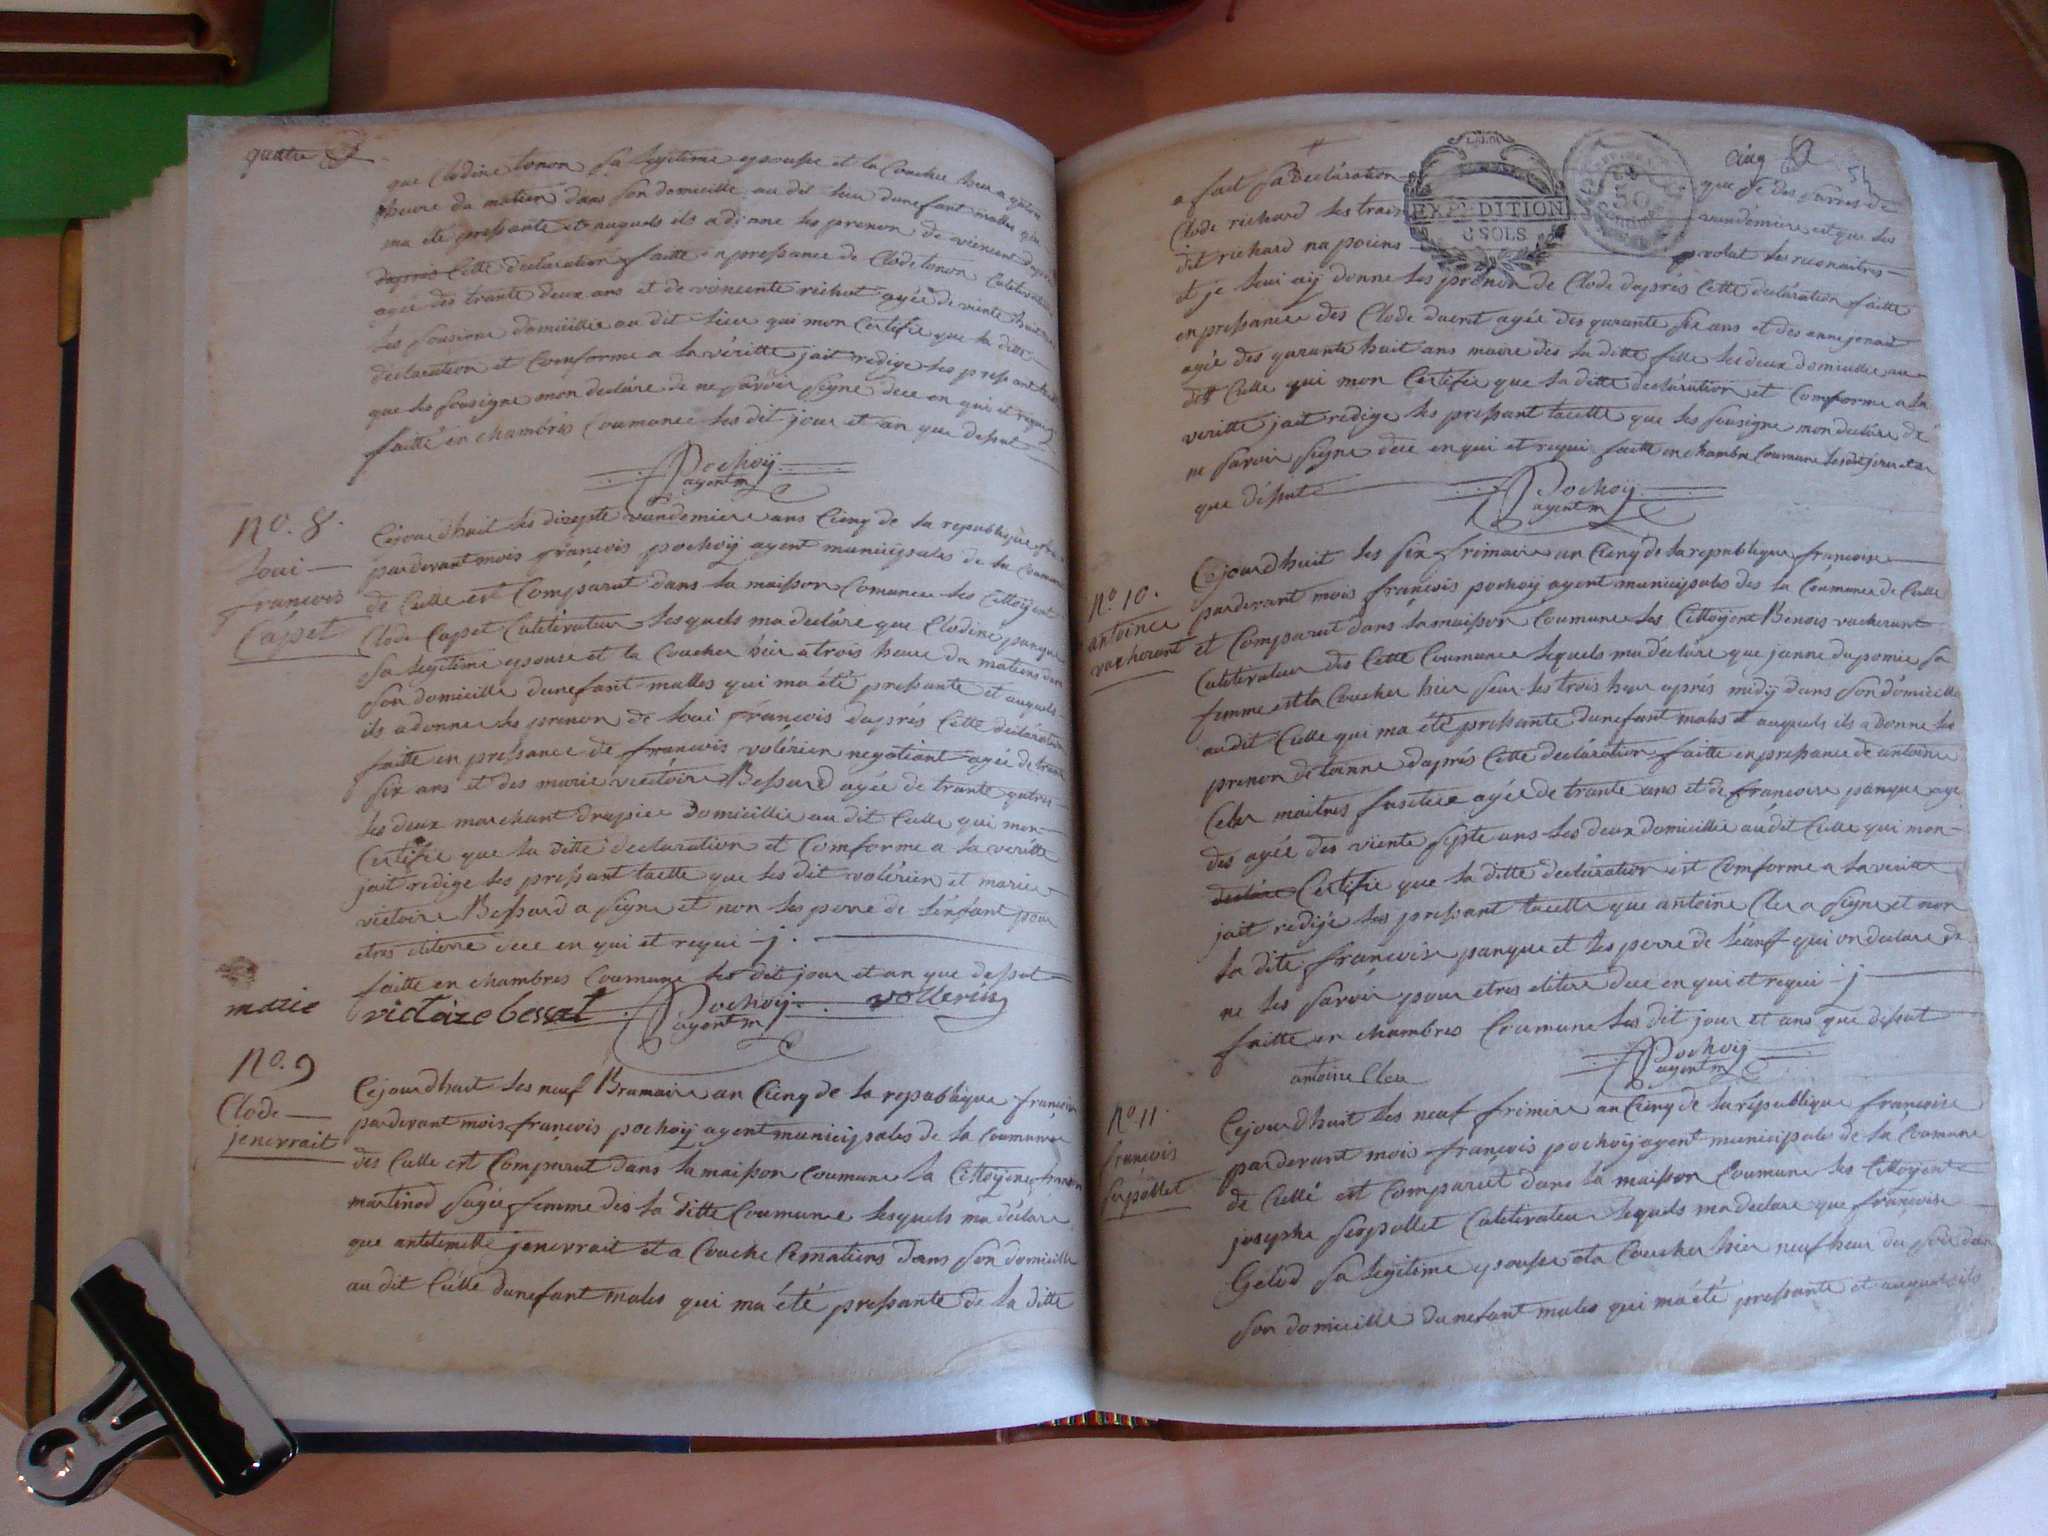 quatre
que Clodine tonon sa legitime epouse et la Coucher hier a quatre
heure du matien dans son domicille au dit lieu dunefant malles qui
ma été pressante et auquels ils a donne les prenon de viencent dapres
dapries Cette declaration faitte en pressance de Clode tonon Cultivateur
agée des trante deux ans et de vinsente richot agée de viente huit
les sousigne domicillie au dit lieu qui mon Certifie que la ditte
declaration et Comforme a la véritte jait redige les pressant
que les sousigne mon declare de ne savoir signe dece en qui et requi
faitte en chambres Coumunee les dit jour et an que dessut
Pochoÿ
agent m
No. 8.
Loui
francois
Capet
Cejourdhuit les dizepte vandemiere ans Cienq de la republique
parderant mois françois pochoÿ agent municipales de la Coumune
de Culle est Comparut dans la maisson Comunee les Cittoÿent
Clode Capet Cultivateur lesquels ma declare que Clodine panque
sa legitime epouse et la Coucher hier a trois heure du matiens dans
son domicille dunefant malles qui ma été pressante et auquels
ils a donne les prenon de Loui françois daprés Cette déclaration
faitte en pressance de francois valérien negotiant agée de trante
six ans et des marie victoire Bessard agée de trante quatres
les deux marchant drapier Domicillie au dit Culle qui mon
Certifie que la ditte declaration et Comforme a la veritte
jait redige les pressant lacette que les dit valérien et marie
victoire Bessard a signe et non les perre de lénfant pour
etres eliterre dece en qui et requi j.
faitte en chambres Coumune les dit jour et an que dessut
marie victoire bessat
Pochoÿ
agent m
vollerin
No. 9
Clode
jenevrait
Cejourdhuit les neuf Brumaire an Cienq de la republique francoise
parderant mois françois pochoÿ agent municipales de la Coumune
des Culle est Comparut dans la maisson Coumune la Cittoÿene
martinod sagée femme des la ditte Coumune lesquels ma déclare
que antelmette jenevrait et a Couche Cematiens dans son domicille
au dit Culle dunefant males qui ma été pressante de la ditte
Cinq
51
a fait sa declaration que je des parres de
Clode richard les train vandémiere et que les
dit richard na poiens volut les reconaitres
EXPÉDITION
8 SOLS
et je lui aÿ donne les prénon de Clode daprés Cette declaration faitte
en pressance des Clode duent agée des quarante six ans et des anne jenait
agée des quarante huit ans maire des la ditte fille les deux domicillie au
dit Culle qui mon Certifie que la ditte declaration et Comforme a la
veritte jait redige les pressant lacette que les sousigne mon declare de
ne savoir signe dece en qui et requi faitte en chambre Coumune les dit jour et an
que déssut
Pochoÿ
agent m
No. 10.
antoinne
vacherant
Cejourdhuit les six frimaire an Cienq de la republique francoise
parderant mois françois pochoÿ agent municipales des la Coumune de Culle
et Comparut dans la maisson Coumune les Cittoÿent Benois vacherant
Cultivateur des Cette Coumune lequels ma déclare que janne dupomie sa
femme est la Coucher hier seur les trois heur aprés midÿ dans son domicille
au dit Culle qui ma été pressante dunefant males et auquels ils a donne les
prenon dantoinne daprés Cette declaration faitte en pressance de antoine
Cler maitres fusetier agée de trante ans et de francoise panque agé
des agée des viente septe ans les deux domicillie au dit Culle qui mon
declare Certifie que la ditte declaration est Comforme a la veritte
jait redige les pressant lacette que antoine Cler a signe et non
la dite francoise panque et les perre de léanf qui on declare de
ne les savoir pour etres eliterre dece en qui et requi j
faitte en chambres Coumune les dit jour et ans que dessut
antoine Cler
Pochoÿ
agent m
No. 11.
francois
serpollet
Cejourdhuit les neuf frimire an Cienq de la république françoise
parderant mois françois pochoÿ agent municipales de la Coumune
de Cullé est Comparut dans la maisson Coumune les Cittoÿent
josephe serpollet Cultivateur lequels ma declare que francoise
Gelod sa legitime epouse eta Coucher hier neuf heur du soir dans
son domicille dunefant males qui ma été pressante et auquels ils